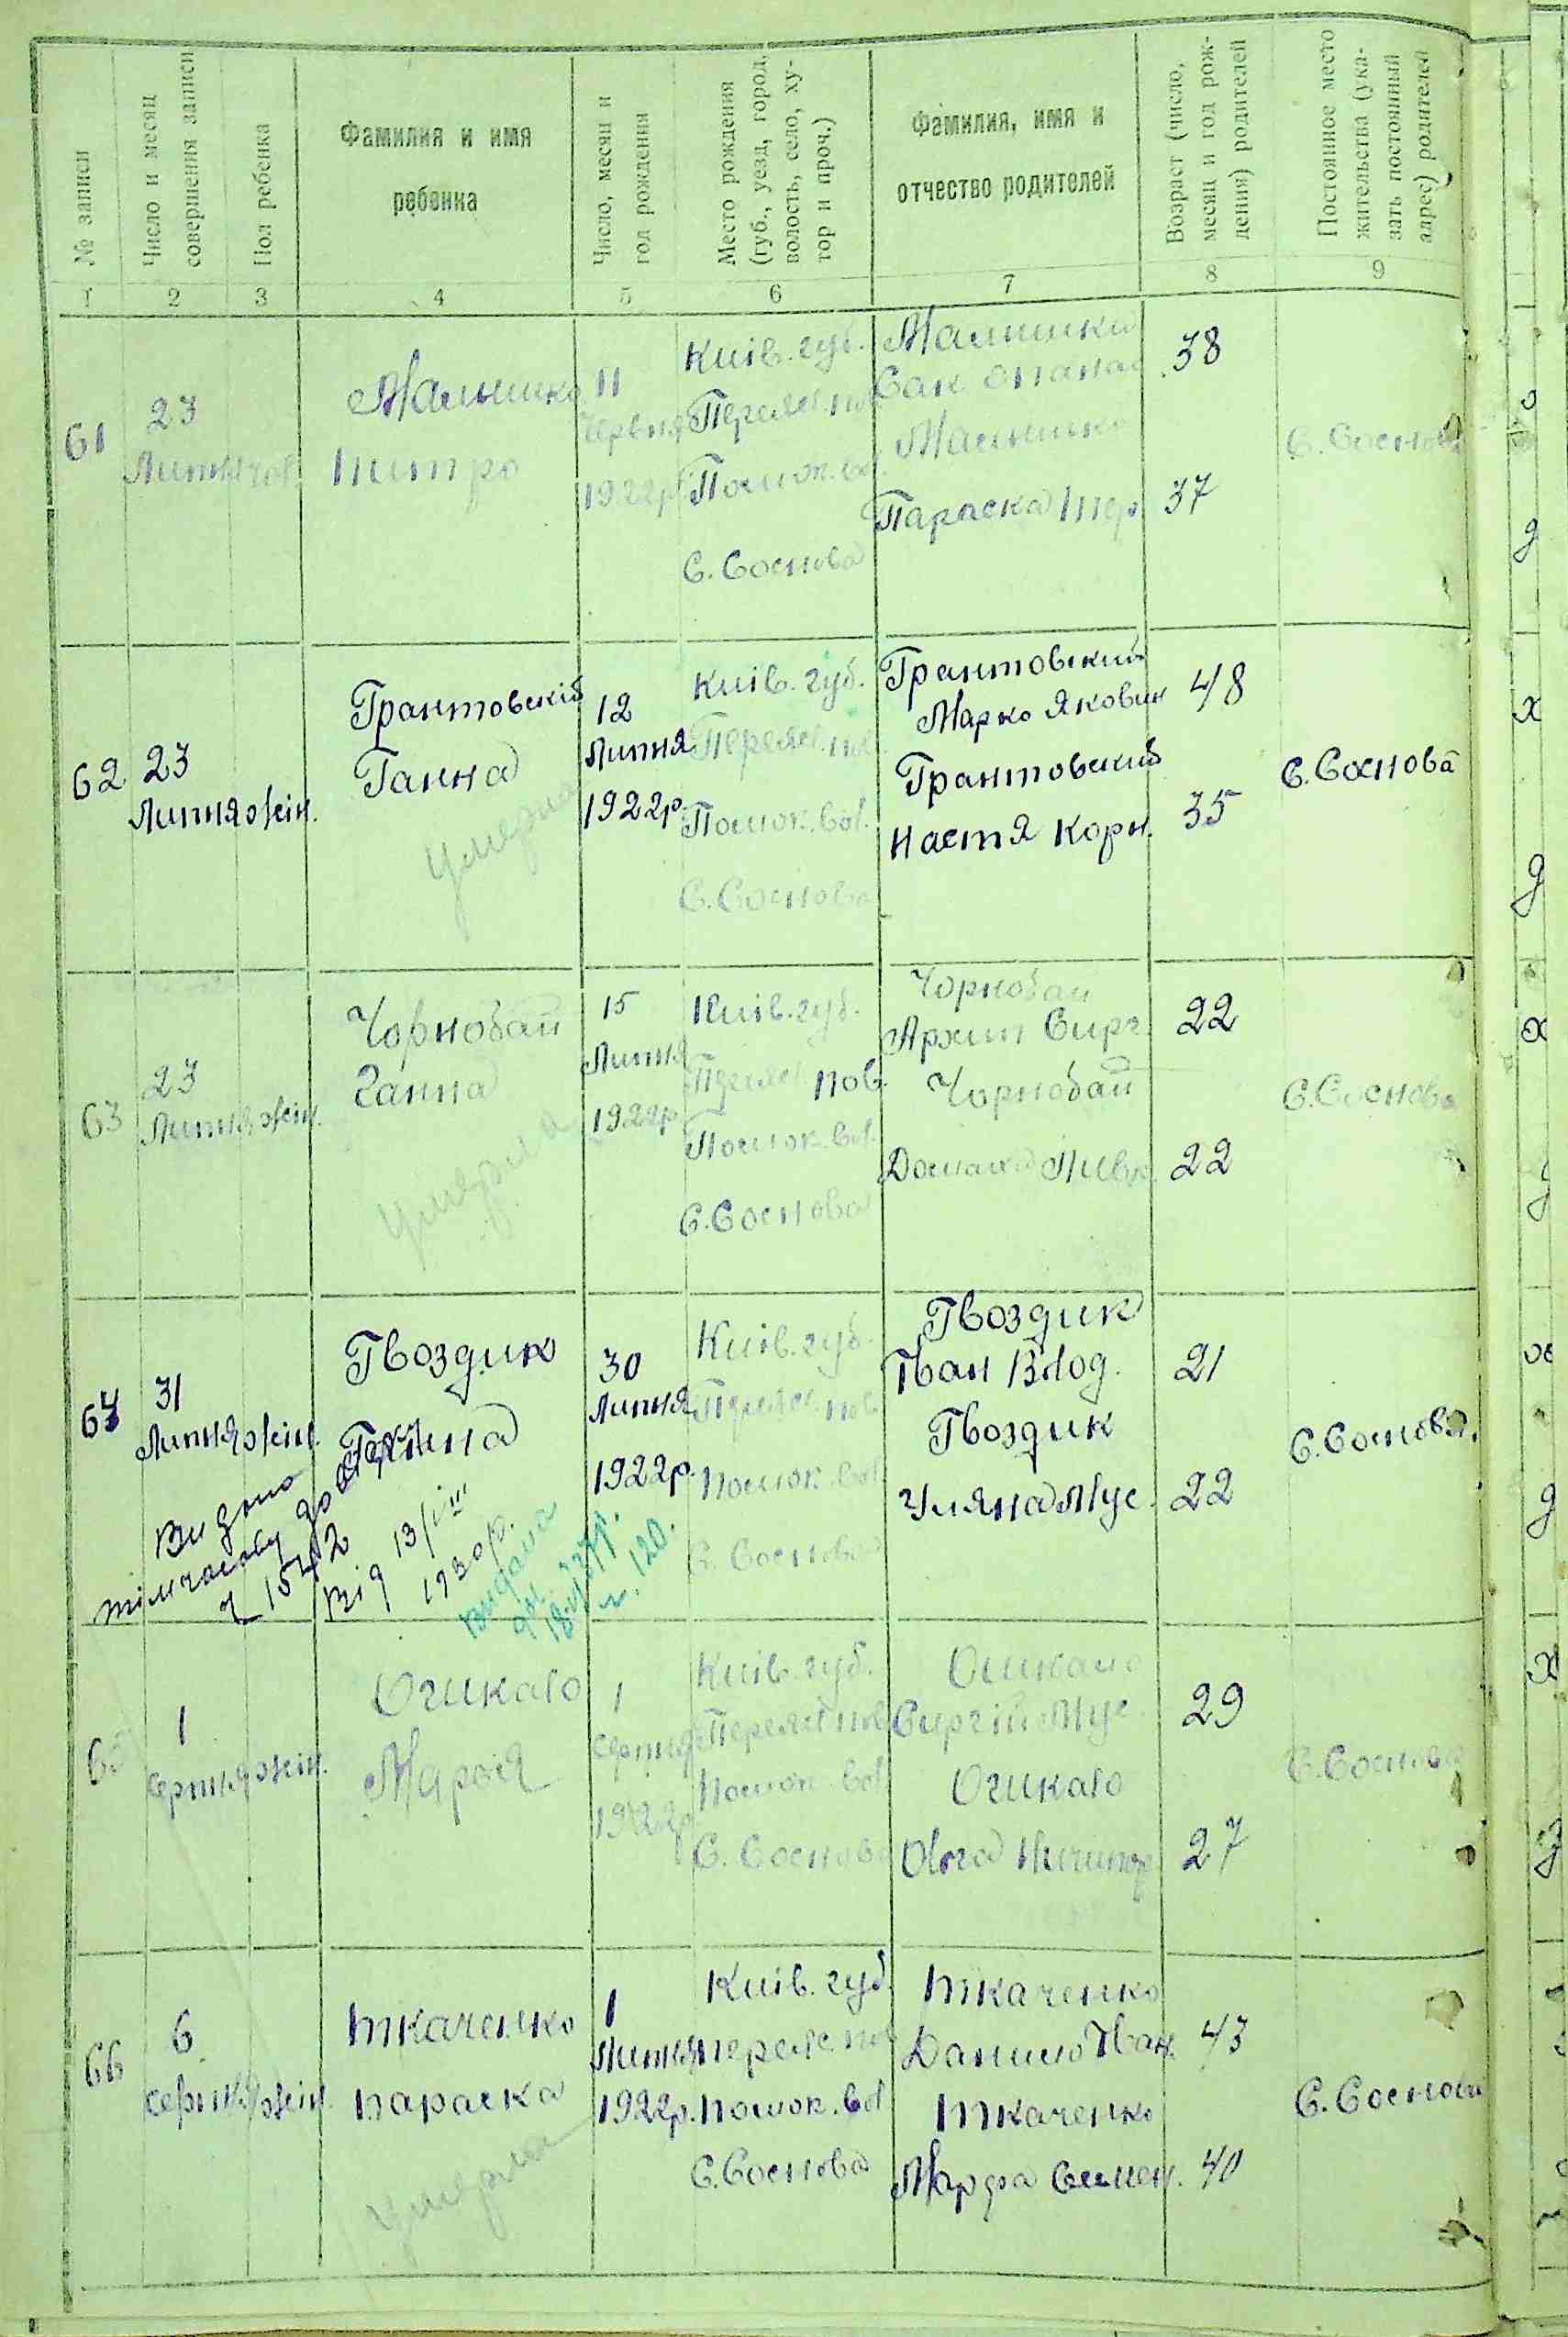 № записи
Число и месяц
совершения записи
Пол ребенка
Фамилия и имя
ребенка
Число, месяц и
год рождения
Место рождения
(губ., уезд, город,
волость, село, ху-
тор и проч.)
Фамилия, имя и
отчество родителей
Возраст (число,
месяц и год рож-
дения) родителей
Постоянное место
жительства (ука-
зать постоянный
адрес) родителей
1 2 3 4 5 6 7 8 9
61
23
Липня чол.
Малишко
11
Червня
1922р.
Київ. губ.
Переясл. пов.
Помок. вол.
С. Соснова
Малишко
Опанас
Малишко
Параска
38
37
С. Соснова
62
23
Липня жін.
Грантовскій
Ганна
умерла
12
Липня
1922р.
Київ. губ.
Переясл. пов.
Помок. вол.
С. Соснова
Грантовский
Марко Якович
Грантовский
Настя Корн.
48
35
С. Соснова
63
23
Липня жін.
Чорнобай
Ганна
умерла
15
Липня
1922р.
Київ. губ.
Переясл. пов.
Помок. вол.
С. Соснова
Чорнобай
Архип Сирг.
Чорнобай
Домаха
22
22
С. Соснова
64
31
Липня жін.
Гвоздик
Ганна
Видано
тимчасову до
ч 1542
від 13/III
1930р.
видана
ч. 120.
30
Липня
1922р.
Київ. губ.
Переясл. пов.
Помок. вол.
С. Соснова
Гвоздик
Іван Влод.
Гвоздик
Уляна Мус.
21
22
С. Соснова.
65
1
серпня жін.
Очикало
Марья
1
серпня
1922р.
Київ. губ.
Переясл. пов.
Помок. вол.
С. Соснова
Очикало
Сиргій Мус.
Очикало
Ольга
29
27
С. Соснова
66
6
серпня жін.
Ткаченко
Параска
умерла
1
Липня
1922р.
Київ. губ.
Переяс. пов.
Помок. вол.
С. Соснова
Ткаченко
Данило Іван.
Ткаченко
Марфа Симен.
43
40
С. Соснова